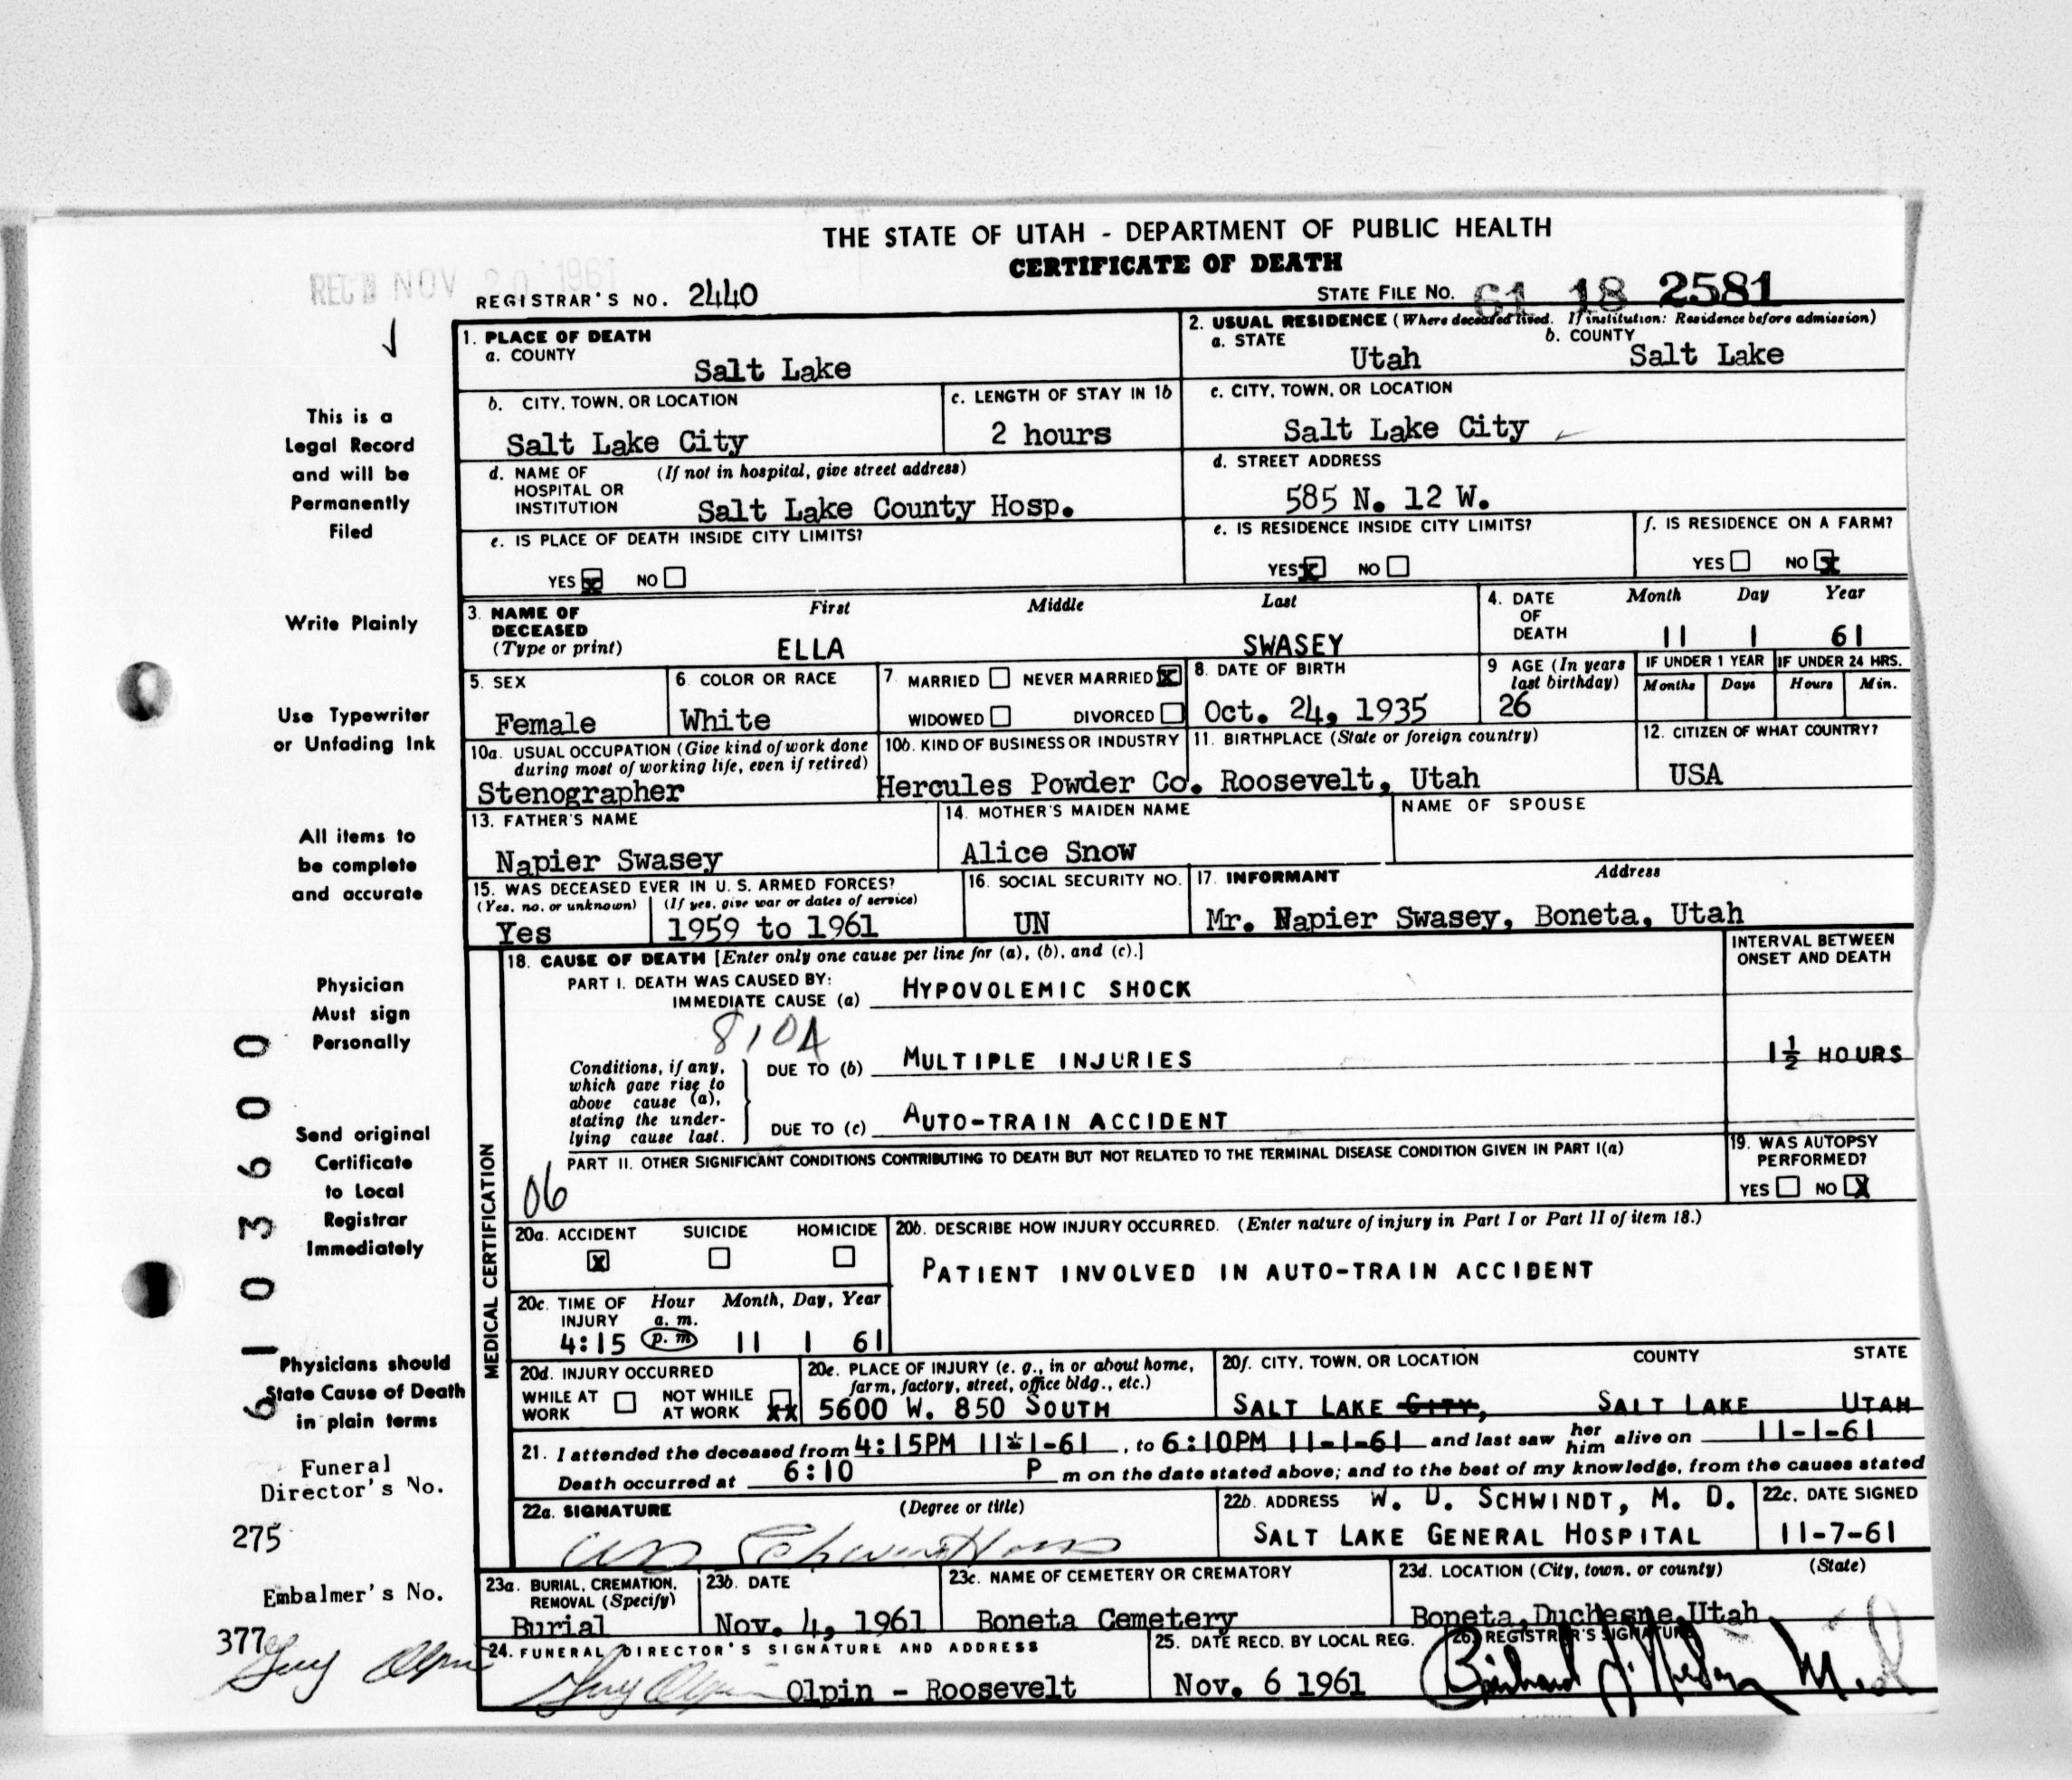 THE STATE OF UTAH - DEPARTMENT OF PUBLIC HEALTH
CERTIFICATE OF DEATH
REC'D NOV 20 1961
REGISTRAR'S NO. 2440
STATE FILE NO. 61 18 2581
1. PLACE OF DEATH
a. COUNTY
Salt Lake
2. USUAL RESIDENCE (Where deceased lived. If institution: Residence before admission)
a. STATE
Utah
b. COUNTY
Salt Lake
b. CITY, TOWN, OR LOCATION
Salt Lake City
c. LENGTH OF STAY IN 1b
2 hours
c. CITY, TOWN, OR LOCATION
Salt Lake City
d. NAME OF HOSPITAL OR INSTITUTION
(If not in hospital, give street address)
Salt Lake County Hosp.
d. STREET ADDRESS
585 N. 12 W.
e. IS PLACE OF DEATH INSIDE CITY LIMITS?
YES x NO
e. IS RESIDENCE INSIDE CITY LIMITS?
YES x NO
f. IS RESIDENCE ON A FARM?
YES NO x
3. NAME OF DECEASED
(Type or print)
First Middle Last
ELLA SWASEY
4. DATE OF DEATH
Month Day Year
11 1 61
5. SEX
Female
6. COLOR OR RACE
White
7. MARRIED NEVER MARRIED x
WIDOWED DIVORCED
8. DATE OF BIRTH
Oct. 24, 1935
9 AGE (In years last birthday)
26
IF UNDER 1 YEAR
Months Days
IF UNDER 24 HRS.
Hours Min.
10a. USUAL OCCUPATION (Give kind of work done during most of working life, even if retired)
Stenographer
10b. KIND OF BUSINESS OR INDUSTRY
Hercules Powder Co.
11. BIRTHPLACE (State or foreign country)
Roosevelt, Utah
12. CITIZEN OF WHAT COUNTRY?
USA
13. FATHER'S NAME
Napier Swasey
14. MOTHER'S MAIDEN NAME
Alice Snow
NAME OF SPOUSE
15. WAS DECEASED EVER IN U. S. ARMED FORCES?
(Yes, no, or unknown) (If yes, give war or dates of service)
Yes 1959 to 1961
16. SOCIAL SECURITY NO.
UN
17. INFORMANT Address
Mr. Napier Swasey, Boneta, Utah
MEDICAL CERTIFICATION
18. CAUSE OF DEATH [Enter only one cause per line for (a), (b), and (c).]
INTERVAL BETWEEN ONSET AND DEATH
PART I. DEATH WAS CAUSED BY:
IMMEDIATE CAUSE (a) HYPOVOLEMIC SHOCK
810A
Conditions, if any, which gave rise to above cause (a), stating the underlying cause last.
DUE TO (b) MULTIPLE INJURIES
1½ HOURS
DUE TO (c) AUTO-TRAIN ACCIDENT
PART II. OTHER SIGNIFICANT CONDITIONS CONTRIBUTING TO DEATH BUT NOT RELATED TO THE TERMINAL DISEASE CONDITION GIVEN IN PART I(a)
06
19. WAS AUTOPSY PERFORMED?
YES NO x
20a. ACCIDENT SUICIDE HOMICIDE
x
20b. DESCRIBE HOW INJURY OCCURRED. (Enter nature of injury in Part I or Part II of item 18.)
PATIENT INVOLVED IN AUTO-TRAIN ACCIDENT
20c. TIME OF INJURY
Hour Month, Day, Year
a. m.
4:15 p. m 11 1 61
20d. INJURY OCCURRED
WHILE AT WORK NOT WHILE AT WORK xx
20e. PLACE OF INJURY (e. g., in or about home, farm, factory, street, office bldg., etc.)
5600 W. 850 SOUTH
20f. CITY, TOWN, OR LOCATION COUNTY STATE
SALT LAKE CITY, SALT LAKE UTAH
21. I attended the deceased from 4:15PM 11-1-61, to 6:10PM 11-1-61 and last saw her him alive on 11-1-61
Death occurred at 6:10 P m on the date stated above; and to the best of my knowledge, from the causes stated
22a. SIGNATURE (Degree or title)
22b. ADDRESS W. D. SCHWINDT, M. D.
SALT LAKE GENERAL HOSPITAL
22c. DATE SIGNED
11-7-61
23a. BURIAL, CREMATION, REMOVAL (Specify)
Burial
23b. DATE
Nov. 4, 1961
23c. NAME OF CEMETERY OR CREMATORY
Boneta Cemetery
23d. LOCATION (City, town, or county) (State)
Boneta, Duchesne, Utah
24. FUNERAL DIRECTOR'S SIGNATURE AND ADDRESS
Guy Olpin Olpin - Roosevelt
25. DATE RECD. BY LOCAL REG.
Nov. 6 1961
26. REGISTRAR'S SIGNATURE
This is a
Legal Record
and will be
Permanently
Filed
Write Plainly
Use Typewriter
or Unfading Ink
All items to
be complete
and accurate
Physician
Must sign
Personally
Send original
Certificate
to Local
Registrar
Immediately
Physicians should
State Cause of Death
in plain terms
Funeral
Director's No.
275
Embalmer's No.
377
Guy Olpin
6103600